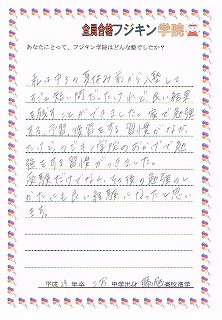 全員合格フジキン学院
あなたにとって、フジキン学院はどんな塾でしたか？
私は中3の夏休み前から入塾して
短い間だったけれど、良い結果
を残すことができました。家で勉強
する、予習復習をする習慣がなか
ったけど、フジキン学院のおかげで勉
強をする習慣がつきました。
受験だけでなく、その後の勉強のし
かたにも良い経験になったと思い
ます。
平成 年卒 中学出身 高校進学